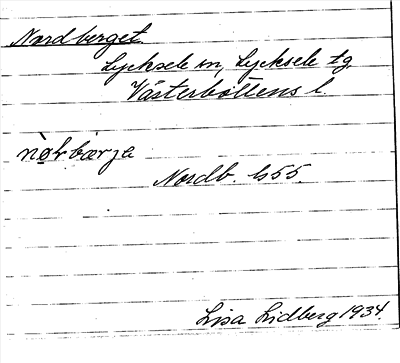 Nordberget
Lycksele sn, Lycksele tg
Västerbottens l.
Nordb. b55.
Lisa Lidberg 1934.